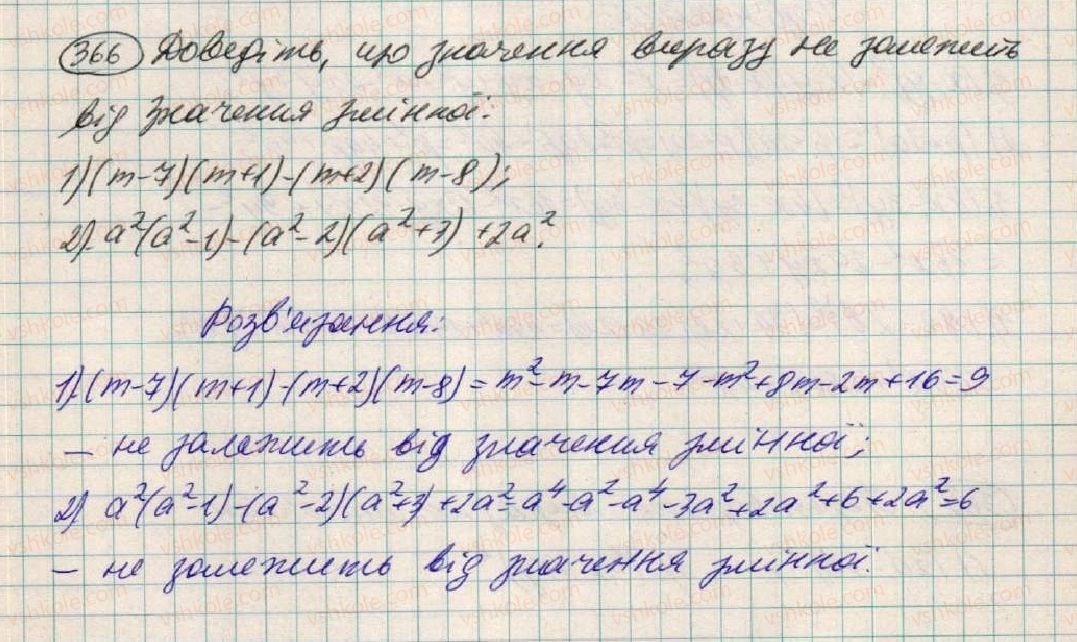 366 Доведіть, що значення виразу не залежить
від значення змінної:
1) (m-7)(m+1)-(m+2)(m-8);
2) a²(a²-1)-(a²-2)(a²+3)+2a².
Розв'язання:
1) (m-7)(m+1)-(m+2)(m-8)=m²-m-7m-7-m²+8m-2m+16=9
– не залежить від значення змінної;
2) a²(a²-1)-(a²-2)(a²+3)+2a²=a⁴-a²-a⁴-3a²+2a²+6+2a²=6
– не залежить від значення змінної.